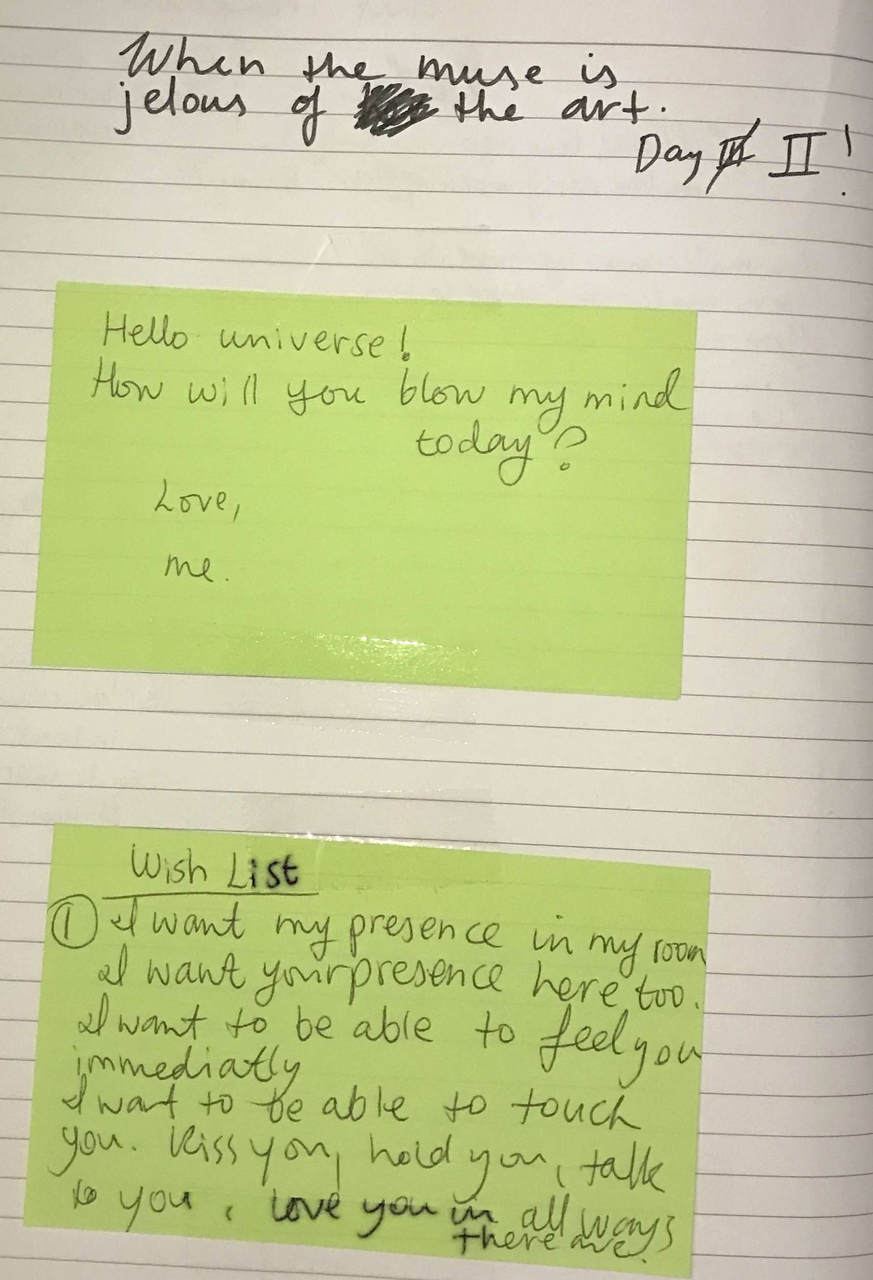 When the muse is
jelous of the art.
Day II!
Hello universe!
How will you blow my mind
today?
Love,
me.
Wish List
① I want my presence in my room
I want your presence here too.
I want to be able to feel you
immediatly
I want to be able to touch
you. Kiss you, hold you, talk
to you, love you in all ways
there are.